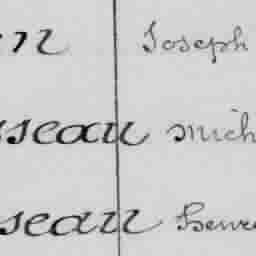 Joseph
sseau Mich
seau Henr